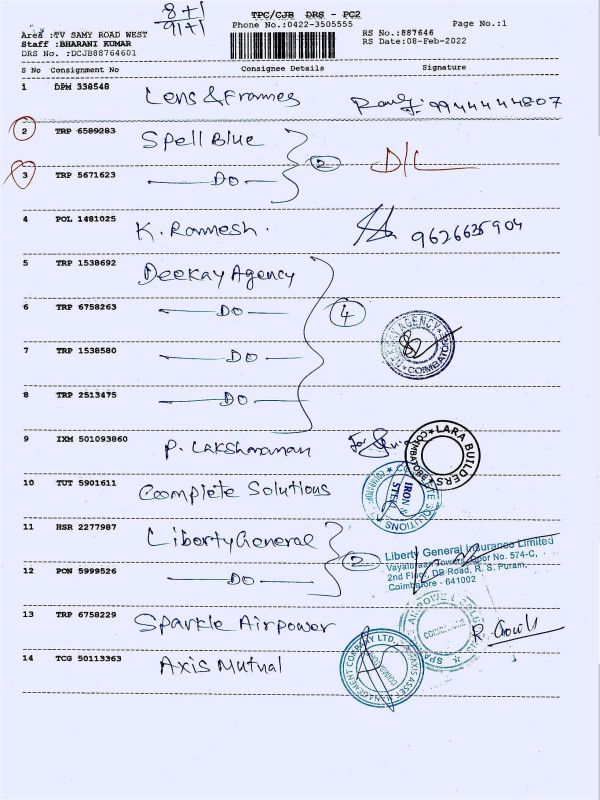 8+1
91+1
TPC/CJB DRS - PC2
Phone No.:0422-3505555
Page No.:1
Area :TV SAMY ROAD WEST
Staff :BHARANI KUMAR
DRS No. :DCJB88764601
RS No.:887646
RS Date:08-Feb-2022
S No Consignment No Consignee Details Signature
1 DPM 338548 Lens & Frames 9944444807
2 TRP 6589283 Spell Blue 2 D/L
3 TRP 5671623 DO
4 POL 1481025 K. Ramesh. 9626635904
5 TRP 1538692 Deekay Agency
6 TRP 6758263 DO 4
7 TRP 1538580 DO
8 TRP 2513475 DO
AGENCY COIMBATORE
9 IXM 501093860 P. Lakshmanan for
LARA BUILDERS COIMBATORE
10 TUT 5901611 Complete Solutions
SOLUTIONS
11 HSR 2277987 Liberty General 2
Liberty General Insurance Limited
Vayaluraan Towers, Door No. 574-C,
2nd Floor, DB Road, R. S. Puram,
Coimbatore - 641002
12 PON 5999526 DO
13 TRP 6758229 Sparkle Airpower
14 TCG 50113363 Axis Mutual